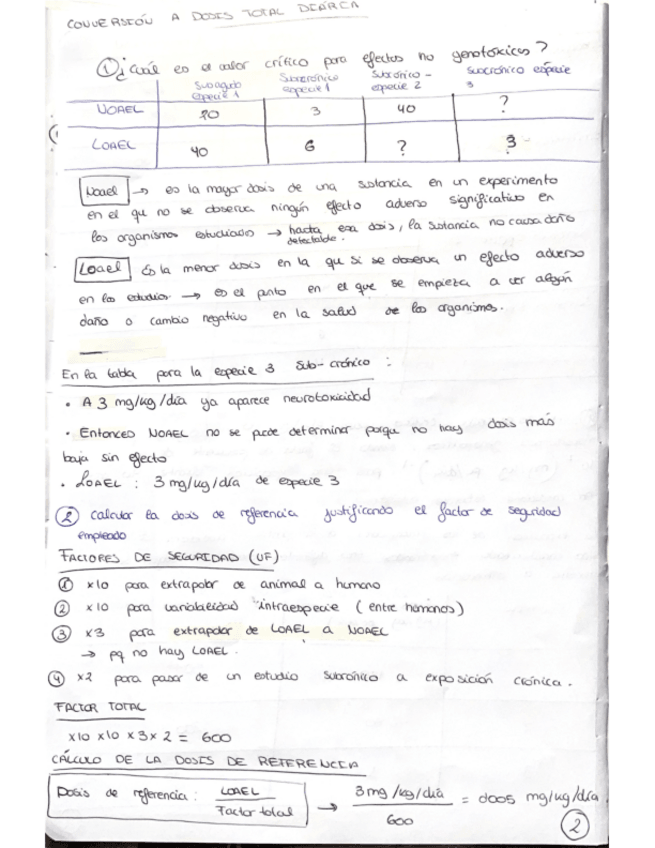 CONVERSIÓN A DOSIS TOTAL DIARIA
① ¿Cuál es el valor crítico para efectos no genotóxicos?
Subagudo especie 1 Subcrónico especie 1 Subcrónico - especie 2 Subcrónico especie 3
NOAEL 20 3 40 ?
LOAEL 40 6 ? 3
Noael → es la mayor dosis de una sustancia en un experimento
en el qu no se observa ningún efecto adverso significativo en
los organismos estudiados → hasta esa dosis, la sustancia no causa daño
detectable.
Loael Es la menor dosis en la que si se observa un efecto adverso
en los estudios → es el punto en el que se empieza a ver algún
daño o cambio negativo en la salud de los organismos.
En la tabla para la especie 3 Sub-crónico :
• A 3 mg/kg/día ya aparece neurotoxicidad
• Entonces NOAEL no se puede determinar porque no hay dosis más
baja sin efecto
• LOAEL : 3 mg/kg/día de especie 3
② Calcular la dosis de referencia justificando el factor de seguridad
empleado
FACTORES DE SEGURIDAD (UF)
① x10 para extrapolar de animal a humano
② x10 para variabilidad intraespecie (entre humanos)
③ x3 para extrapolar de LOAEL a NOAEL
→ pq no hay LOAEL.
④ x2 para pasar de un estudio subcrónico a exposición crónica.
FACTOR TOTAL
x10 x10 x3 x 2 = 600
CÁLCULO DE LA DOSIS DE REFERENCIA
Dosis de referencia : LOAEL / Factor total → 3 mg/kg/día / 600 = 0'005 mg/kg/día
②